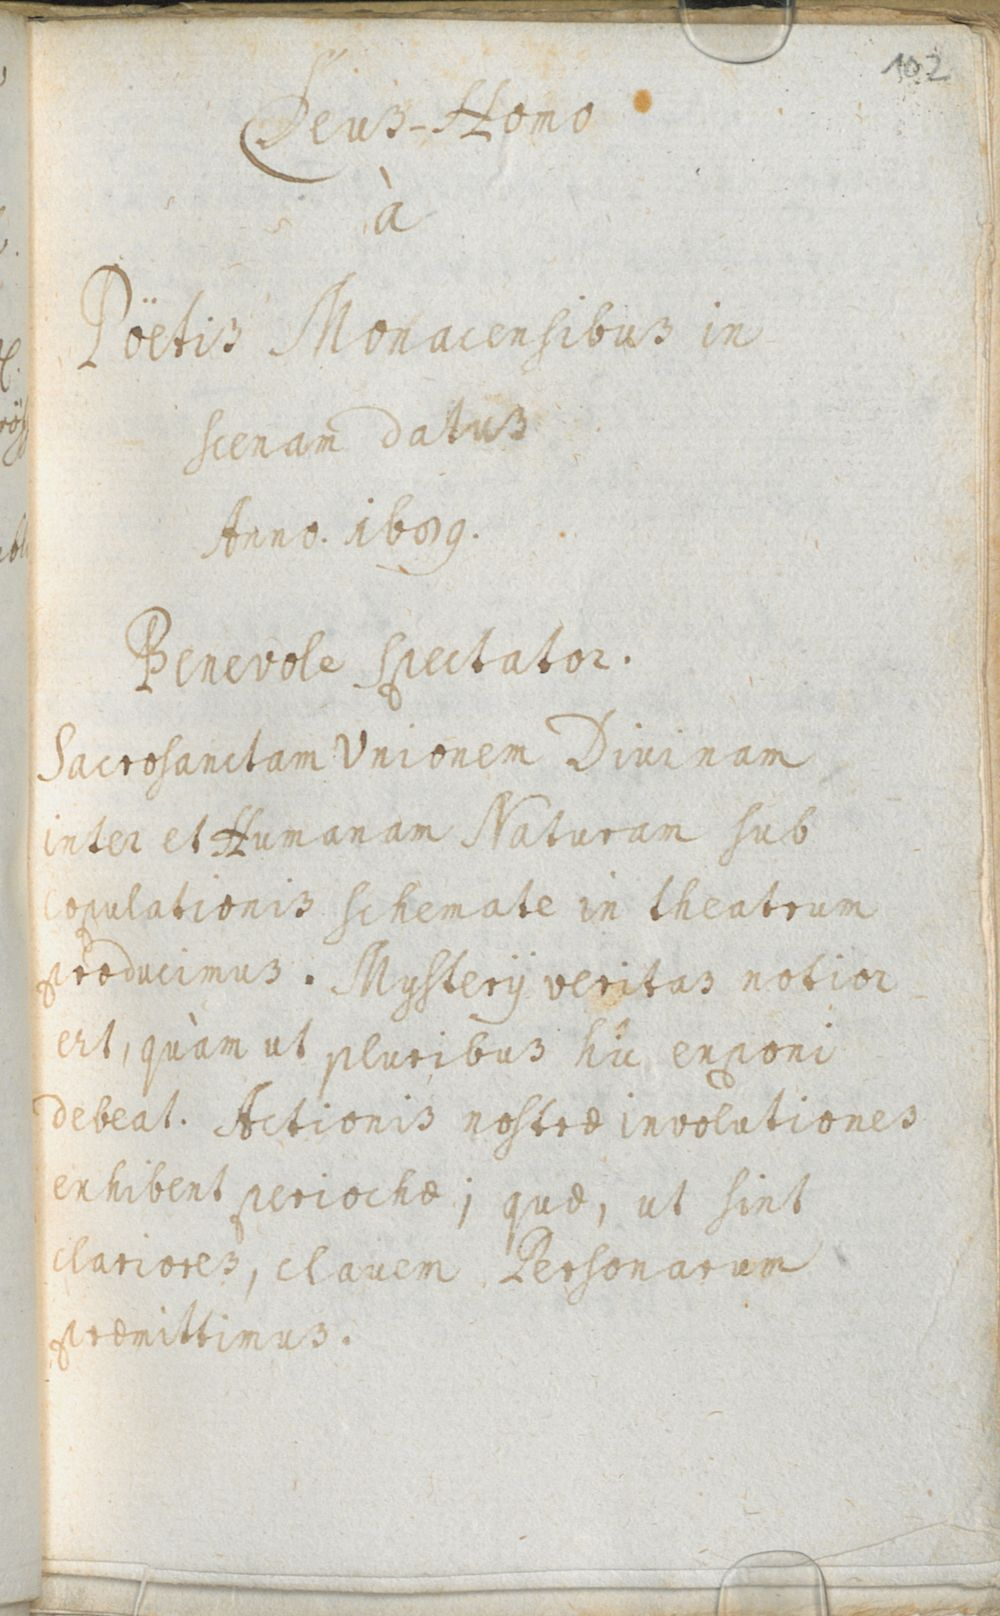 102
Deus-Homo
à
Pöetis Monacensibus in
scenam datus
Anno. 1689.
Benevole spectator.
Sacrosanctam Vnionem Diuinam
inter et Humanam Naturam sub
copulationis schemate in theatrum
producimus. Mysterij veritas notior
est, quàm ut pluribus hic exponi
debeat. Actionis nostræ involutiones
exhibent periochæ; quæ, ut sint
clariores, clauem Personarum
præmittimus.